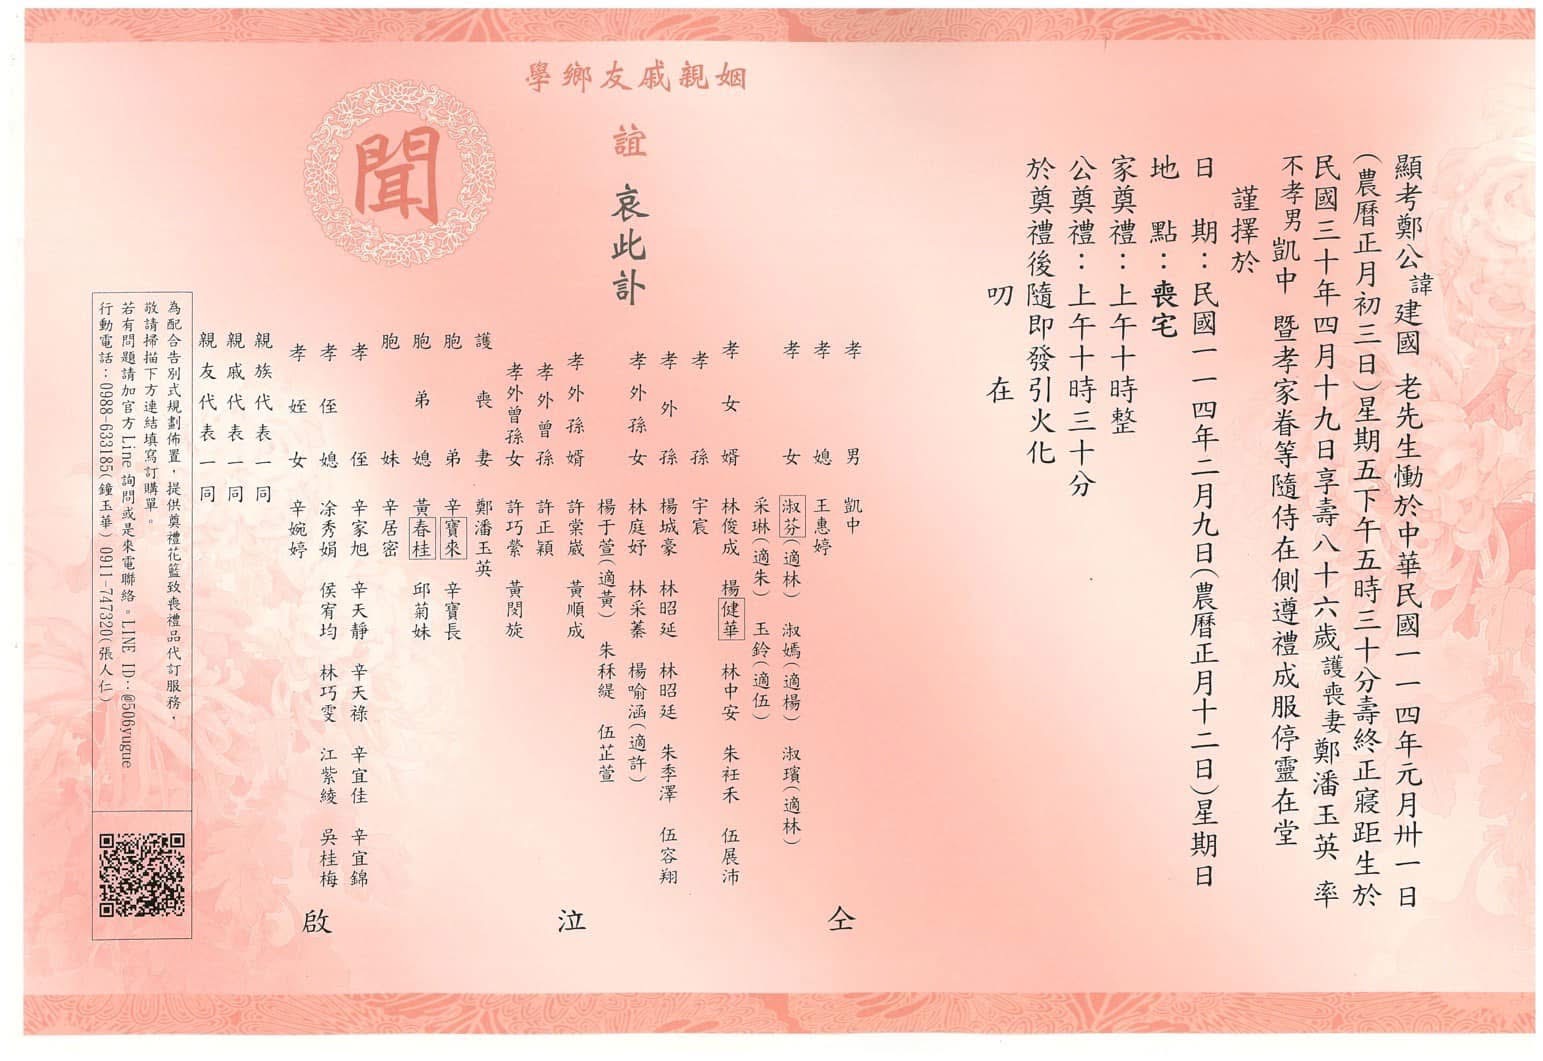 顯考鄭公諱建國 老先生慟於中華民國一一四年元月卅一日
(農曆正月初三日)星期五下午五時三十分壽終正寢距生於
民國三十年四月十九日享壽八十六歲護喪妻鄭潘玉英 率
不孝男凱中 暨孝家眷等隨侍在側遵禮成服停靈在堂
謹擇於
日 期：民國一一四年二月九日(農曆正月十二日)星期日
地 點：喪宅
家奠禮：上午十時整
公奠禮：上午十時三十分
於奠禮後隨即發引火化
叨 在
姻親戚友鄉學
誼 哀此訃
聞
孝 男 凱中
孝 媳 王惠婷
孝 女 淑芬(適林) 淑嫣(適楊) 淑璸(適林)
采琳(適朱) 玉鈴(適伍)
孝女婿 林俊成 楊健華 林中安 朱衽禾 伍展沛
孝 孫 宇宸
孝外孫 楊城豪 林昭延 林昭廷 朱季澤 伍容翔
孝外孫女 林庭妤 林采蓁 楊喻涵(適許)
楊于萱(適黃) 朱秝緹 伍芷萱
孝外孫婿 許棠崴 黃順成
孝外曾孫 許正穎
孝外曾孫女 許巧縈 黃閔旋
護喪妻 鄭潘玉英
胞 弟 辛寶來 辛寶長
胞弟媳 黃春桂 邱菊妹
胞 妹 辛居密
孝 侄 辛家旭 辛天靜 辛天祿 辛宜佳 辛宜錦
孝侄媳 涂秀娟 侯宥均 林巧雯 江紫綾 吳桂梅
孝姪女 辛婉婷
親族代表一同
親戚代表一同
親友代表一同
仝 泣 啟
為配合告別式規劃佈置，提供奠禮花籃致喪禮品代訂服務，
敬請掃描下方連結填寫訂購單。
若有問題請加官方Line詢問或是來電聯絡。LINE ID：@506yugue
行動電話：0988-633185(鐘玉華) 0911-747320(張人仁)